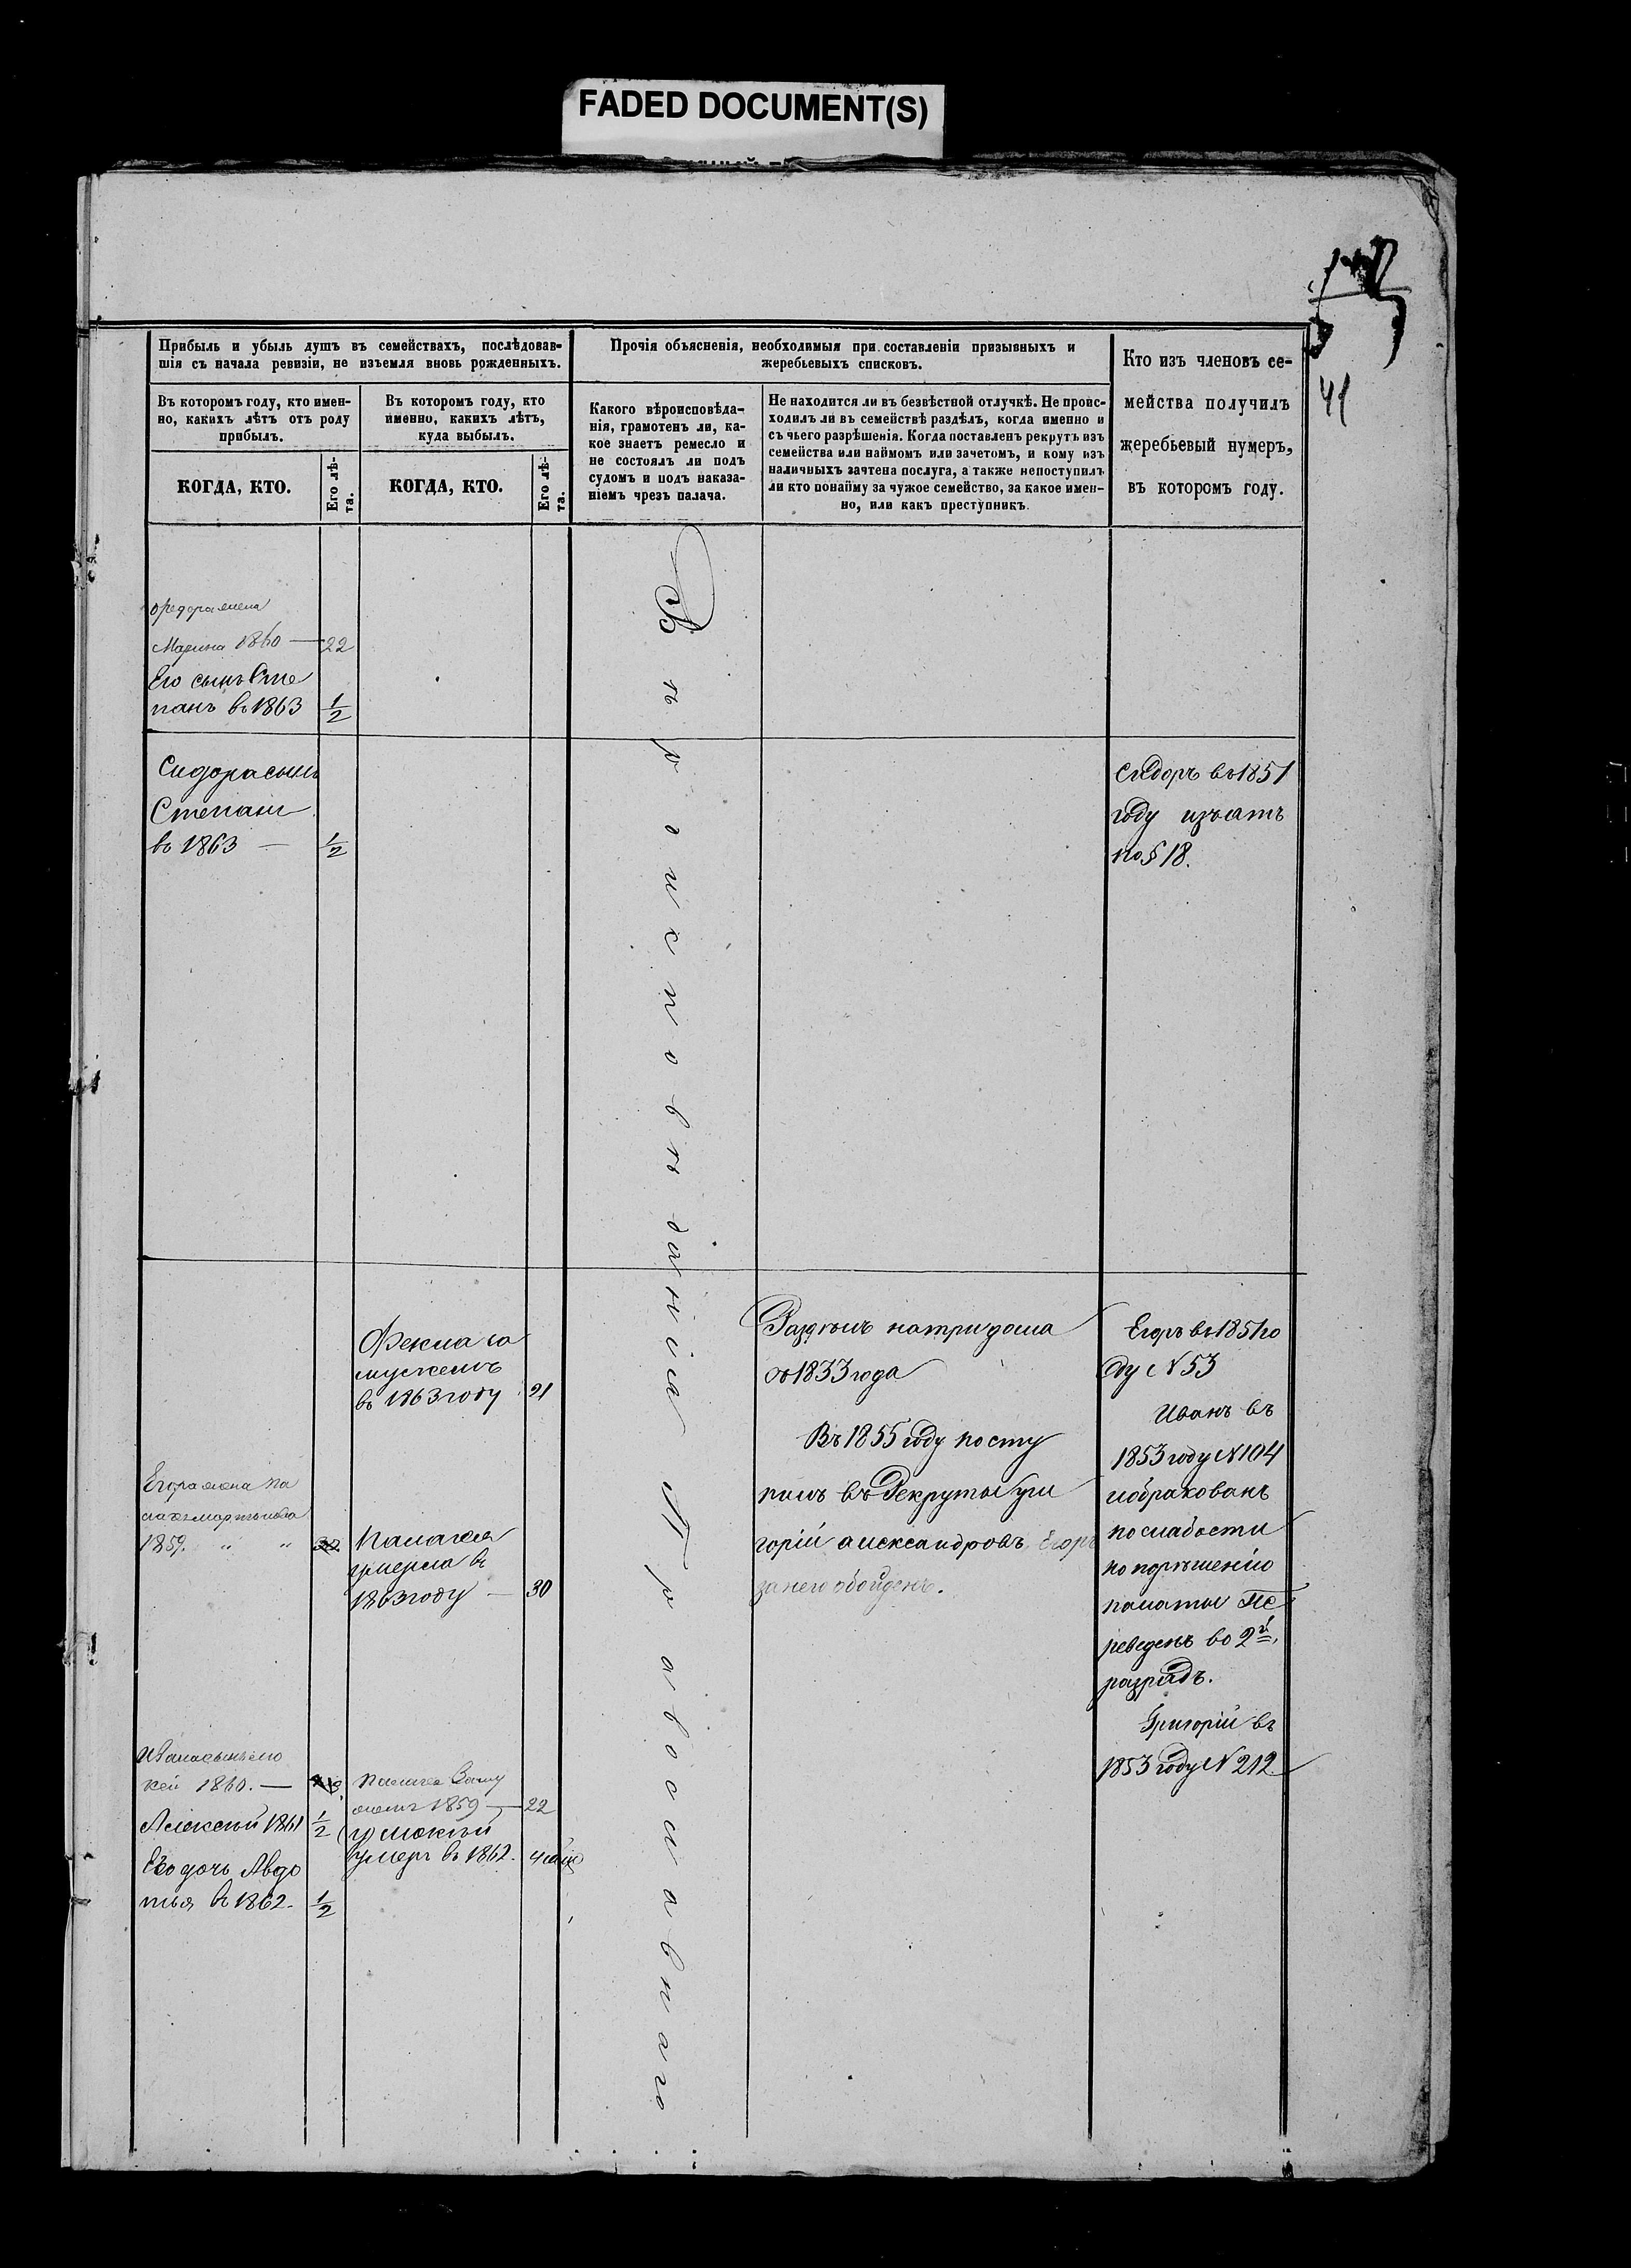 FADED DOCUMENT(S)
41
Прибыль и убыль душъ въ семействахъ, послѣдовав-
шія съ начала ревизіи, не изъемля вновь рожденныхъ.
Въ которомъ году, кто имен-
но, какихъ лѣтъ отъ роду
прибылъ.
КОГДА, КТО.
Его лѣ-
та.
Въ которомъ году, кто
именно, какихъ лѣтъ,
куда выбылъ.
КОГДА, КТО.
Его лѣ-
та.
Прочія объясненія, необходимыя при составленіи призывныхъ и
жеребьевыхъ списковъ.
Какого вѣроисповѣда-
нія, грамотенъ ли, ка-
кое знаетъ ремесло и
не состоялъ ли подъ
судомъ и подъ наказа-
ніемъ чрезъ палача.
Не находится ли въ безвѣстной отлучкѣ. Не проис-
ходилъ ли въ семействѣ раздѣлъ, когда именно и
съ чьего разрѣшенія. Когда поставленъ рекрутъ изъ
семейства или наймомъ или зачетомъ, и кому изъ
наличныхъ зачтена послуга, а также непоступилъ
ли кто понайму за чужое семейство, за какое имен-
но, или какъ преступникъ.
Кто изъ членовъ се-
мейства получилъ
жеребьевый нумеръ,
въ которомъ году.
Федора жена
Марина 1860 — 22
Его сынъ Сте
панъ въ 1863 1/2
Сидора сынъ
Степанъ
въ 1863 — 1/2
Сидоръ въ 1851
году изъятъ
по § 18.
Вѣроисповѣданія Православнаго
Фекла за
мужемъ
въ 1863 году 21
Егора жена Па
1859. " "
Палагея
умерла въ
1863 году — 30
Ивана сынъ
кей 1860. —
Алексѣй 1861 1/2
Его дочь Авдо
тья въ 1862. 1/2
Заму
жемъ 1859 — 22
умеръ въ 1862.
Раздѣлъ на три дома
съ 1833 года
Въ 1855 году посту
пилъ въ Рекруты Гри
горій Александровъ, Егоръ
за него обойденъ.
Егоръ въ 1851 го
ду N 53
Иванъ въ
1853 году N 104
избракованъ
по слабости
по порѣшенію
палаты Пе
реведенъ во 2й
разрядъ.
Григорій въ
1853 году N 212